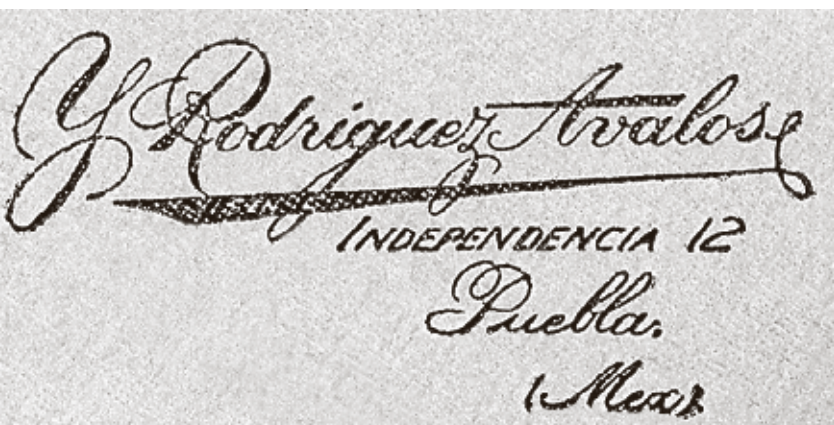 Y Rodriguez Avalos
INDEPENDENCIA 12
Puebla.
(Mex).